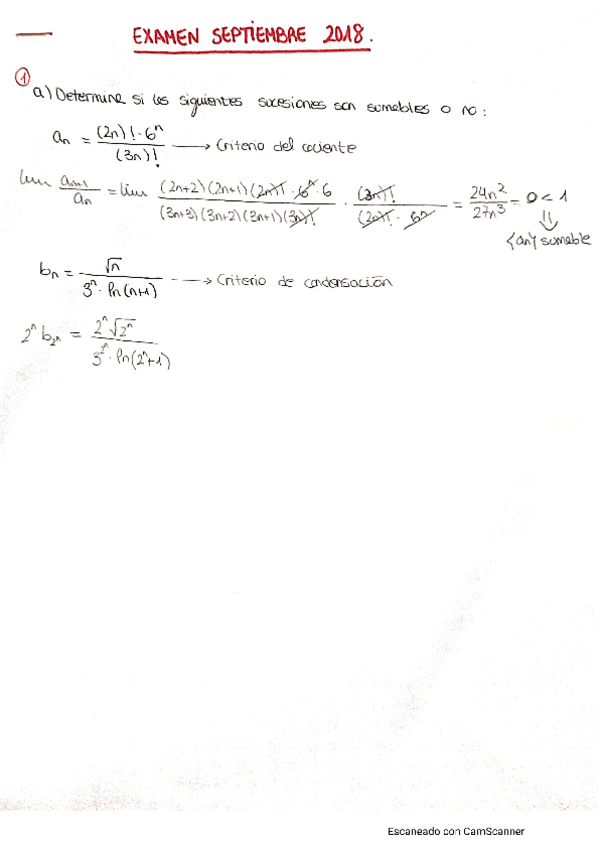 EXAMEN SEPTIEMBRE 2018.
①
a) Determine si las siguientes sucesiones son sumables o no:
aₙ = (2n)!·6ⁿ / (3n)! → Criterio del cociente
lim aₙ₊₁/aₙ = lim (2n+2)(2n+1)(2n)!·6ⁿ·6 / (3n+3)(3n+2)(3n+1)(3n)! · (3n)! / (2n)!·6ⁿ = 24n²/27n³ = 0 < 1
⇓
{an} sumable
bₙ = √n / 3ⁿ·ln(n+1) → Criterio de condensación
2ⁿ b₂ⁿ = 2ⁿ√2ⁿ / 3^2ⁿ·ln(2ⁿ+1)
Escaneado con CamScanner